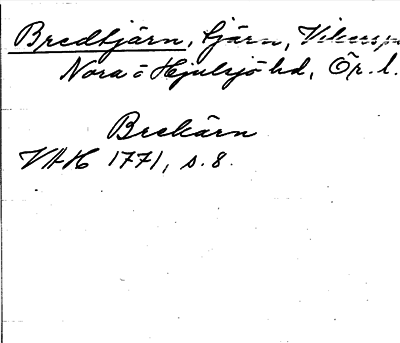 Bredtjärn, tjärn, Vikersp
Nora o Hjulsjö hd, Ör. l.
Breckärn
VAH 1771, s. 8.